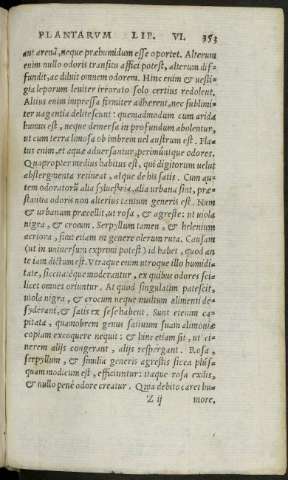 PLANTARVM LIB. VI. 353
aut arena, neque præhumidum esse oportet. Alterum
enim nullo odoris transitu affici potest, alterum dif-
fundit, ac diluit omnem odorem. Hinc enim & uesti-
gia leporum leuiter irrorato solo certius redolent.
Altius enim impressa firmiter adhærent, nec sublimi-
ter uagentia delitescunt: quemadmodum cum arida
humus est, neque demersa in profundum abolentur,
ut cum terra limosa ob imbrem uel austrum est. Fla-
tus enim, et aqua aduersantur, perimũtque odores.
Quapropter medius habitus est, qui digitorum uelut
abstergmenta retineat, atque de his satis. Cum au-
tem odoratorũ alia syluestria, alia urbana sint, præ-
stantia odoris non alterius tantum generis est. Nam
& urbanam præcellit, ut rosa, & agreste: ut uiola
nigra, & crocum. Serpyllum tamen, & helenium
acriora, sicut etiam in genere olerum ruta. Causam
(ut in uniuersum exprimi potest) id habet, quod an-
te iam dictum est. Vtraque enim utroque illo humidi-
tate, siccitatéque moderantur, ex quibus odores sci-
licet omnes oriuntur. At quod singulatim patescit,
uiola nigra, & crocum neque multum alimenti de-
syderant, & satis ex sese habent. Sunt etenim ca-
pitata, quamobrem genus satiuum suam alimoniæ
copiam excoquere nequit: & hinc etiam fit, ut ci-
nerem alijs congerant, alijs respergant. Rosa,
serpyllum, & similia generis agrestis sicca plus-
quam modicum est, efficiuntur: itaque rosa exilis,
& nullo penè odore creatur. Quia debito caret hu-
Z ij more,